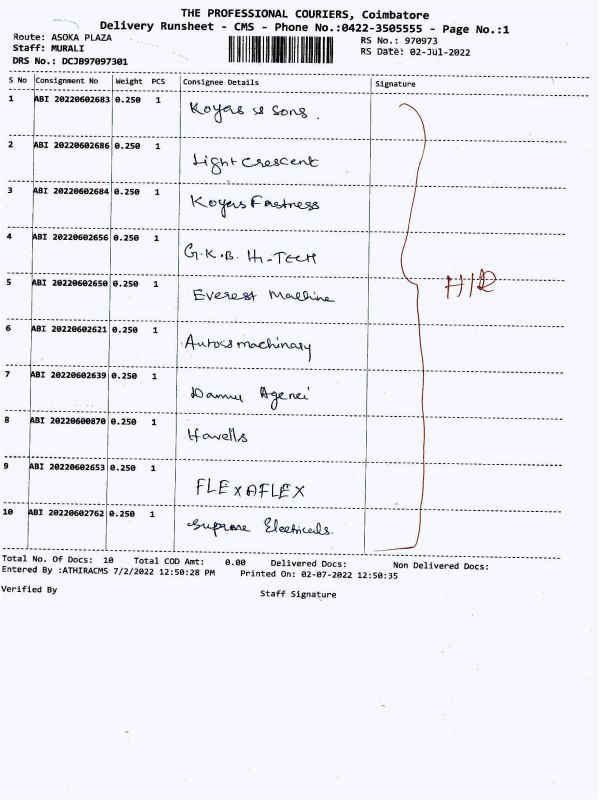 THE PROFESSIONAL COURIERS, Coimbatore
Delivery Runsheet - CMS - Phone No.:0422-3505555 - Page No.:1
Route: ASOKA PLAZA RS No.: 970973
Staff: MURALI RS Date: 02-Jul-2022
DRS No.: DCJB97097301
S No Consignment No Weight PCS Consignee Details Signature
1 ABI 20220602683 0.250 1 Koyas & Sons.
2 ABI 20220602686 0.250 1 Light Crescent
3 ABI 20220602684 0.250 1 Koyas Fastness
4 ABI 20220602656 0.250 1 G.K.B. Hi-TECH
5 ABI 20220602650 0.250 1 Everest Machine
6 ABI 20220602621 0.250 1 machinary
7 ABI 20220602639 0.250 1 Agenci
8 ABI 20220600870 0.250 1 Havells
9 ABI 20220602653 0.250 1 FLEXAFLEX
10 ABI 20220602762 0.250 1 Supreme Electricals.
Total No. Of Docs: 10 Total COD Amt: 0.00 Delivered Docs: Non Delivered Docs:
Entered By :ATHIRACMS 7/2/2022 12:50:28 PM Printed On: 02-07-2022 12:50:35
Verified By Staff Signature